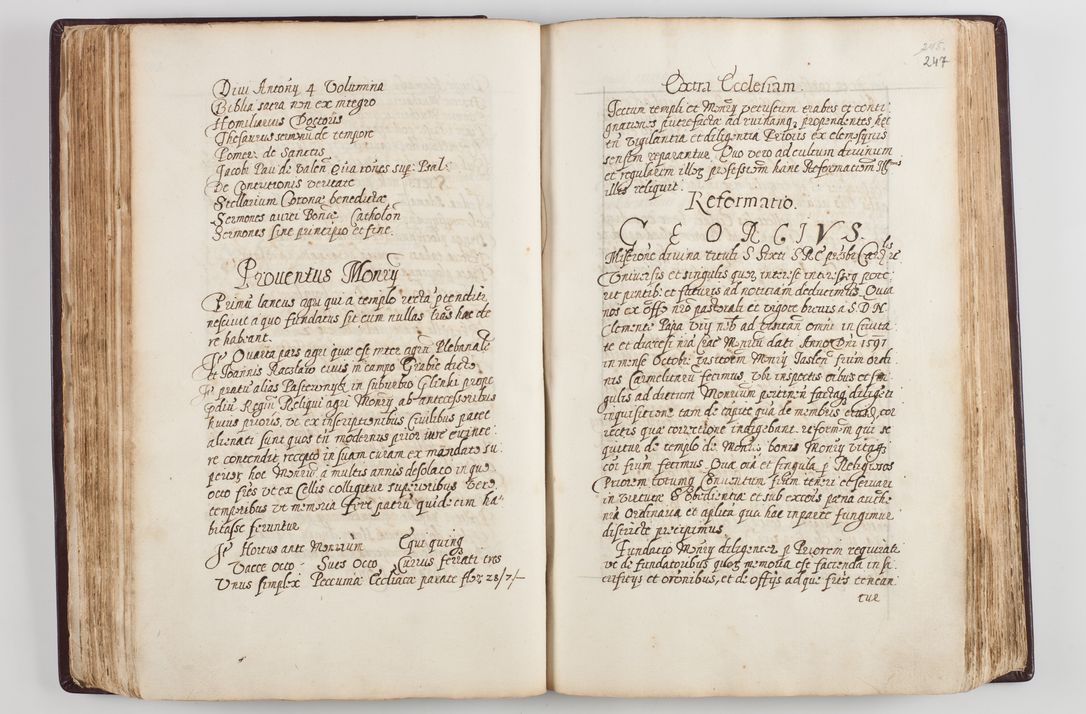 Diui Antonÿ 4 Volumina
Biblia sacra non ex integro
Homiliarius Doctoris
Thesaurus sermonũ de tempore
Pomer. de Sanctis
Jacobi de Valen sup: Psal:
De veritate
Stellarium Coronæ benedictæ
Sermones aurei Bonæ
Sermones sine principio et fine.
Prouentus Monrÿ
Primũ laneus agri qui a templo recta ptenditur
nesciuit a quo fundatus sit cum nullas lrãs hac de
re habeant.
Quarta pars agri quæ est inter agrũ Plebanalẽ
et Joannis Raczlaw ciuis in campo Grabie dicto
pratũ alias Pasternÿk in suburbio Glinki prope
Reliqui agri Monrÿ ab antecessoribus
huius prioris, vt ex inscriptionibus Ciuilibus patet
alienati sunt quos eñ modernus prior iure euince
re contendit recepto in suam curam ex mandato su
perior hoc Monriũ a multis annis desolato in quo
octo frẽs vt ex Cellis colligitur superioribus vero
temporibus vt memoria fert patrũ quidecim ha
bitasse feruntur
Hortus ante Monrium Equi quinq
Vacce octo Sues Octo Currus ferrati tres
Vnus simplex Peccuniæ paratæ flor: 28/7/-
245.
247
Extra Ecclesiam.
Tectum templi et Monrÿ vetustum trabes et conti
gnationes putrefactæ ad ruinamq propendentes hec
tñ vigilantia et diligentia Prioris ex elemosynis
sensim reparantur. Quo vero ad cultum diuinum
et regularem illoꝝ professiom hanc Reformatiom
illis reliquit.
Reformatio.
GEORGIVS.
Miserõne diuina tituli S Sixti S.R.E presbi
Vniuersis et singulis quoꝝ interest intererit potue
rit pñtib: et futuris ad notitiam deducimus. Quia
nos ex offo nro pastorali et vigore breuis a S.D.N.
Clemente Papa VIII nob ad vsitan omni in Ciuita
te et diocesi nra Monriũ dati Anno Dni 1597
in mense Octobr: vsitatiom Monrÿ Jaslen frum ordi
nis Carmelitarũ fecimus. Vbi inspectis orĩbus et sin
gulis ad dictum Monrium pertinen factaq diligeti
inquisitione tam de capite quã de membris cor
rectis quæ correctione indigebant reformm qui se
quitur de templo de Monrio bonis Monrÿ vitaq
eor frum fecimus. Quæ oiã et singula p Religiosos
Priorem totumq Conuentum frum teneri et seruari
in virtute S Obedientiæ et sub excois pæna authe
nrã Ordinaria et aplica qua hac in parte fungimur
districte precipimus.
Fundatio Monrÿ diligenter p Priorem requirat
vt de fundatoribus quoꝝ memoria est facienda in sa
crificÿs et orõnibus, et de offÿs ad que frẽs tenean
tur